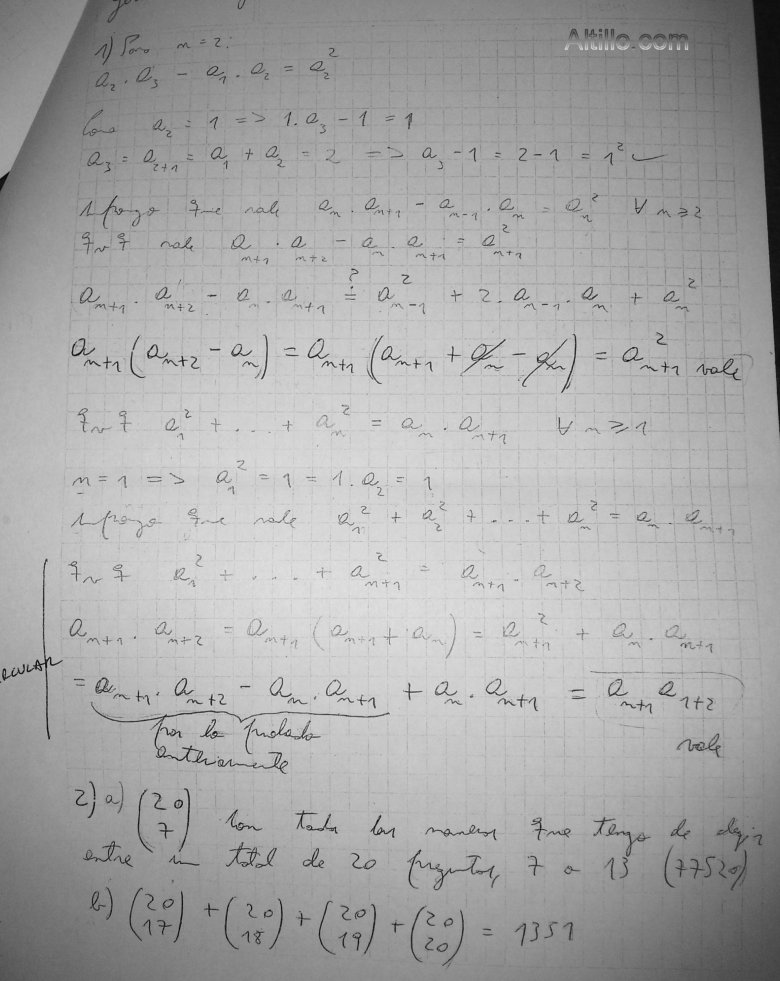 Altillo.com
1) Para n = 2:
a₂ . a₃ - a₁ . a₂ = a₂²
Como a₂ = 1 => 1.a₃ - 1 = 1
a₃ = a₂₊₁ = a₁ + a₂ = 2 => a₃ - 1 = 2 - 1 = 1² ✓
Supongo que vale aₙ . aₙ₊₁ - aₙ₋₁ . aₙ = aₙ² ∀ n ≥ 2
qvq vale aₙ₊₁ . aₙ₊₂ - aₙ . aₙ₊₁ = aₙ₊₁²
aₙ₊₁ . aₙ₊₂ - aₙ . aₙ₊₁ =? aₙ₋₁² + 2 . aₙ₋₁ . aₙ + aₙ²
aₙ₊₁ (aₙ₊₂ - aₙ) = aₙ₊₁ (aₙ₊₁ + aₙ - aₙ) = aₙ₊₁² vale
qvq a₁² + ... + aₙ² = aₙ . aₙ₊₁ ∀ n ≥ 1
n = 1 => a₁² = 1 = 1 . a₂ = 1
Supongo que vale a₁² + a₂² + ... + aₙ² = aₙ . aₙ₊₁
qvq a₁² + ... + aₙ₊₁² = aₙ₊₁ . aₙ₊₂
aₙ₊₁ . aₙ₊₂ = aₙ₊₁ (aₙ₊₁ + aₙ) = aₙ₊₁² + aₙ . aₙ₊₁
= aₙ₊₁ . aₙ₊₂ - aₙ . aₙ₊₁ + aₙ . aₙ₊₁ = aₙ₊₁ a₁₊₂
por lo probado
anteriormente
vale
2) a) (20 7) Son todas las maneras que tengo de elegir
entre un total de 20 preguntas, 7 o 13 (77520)
b) (20 17) + (20 18) + (20 19) + (20 20) = 1351